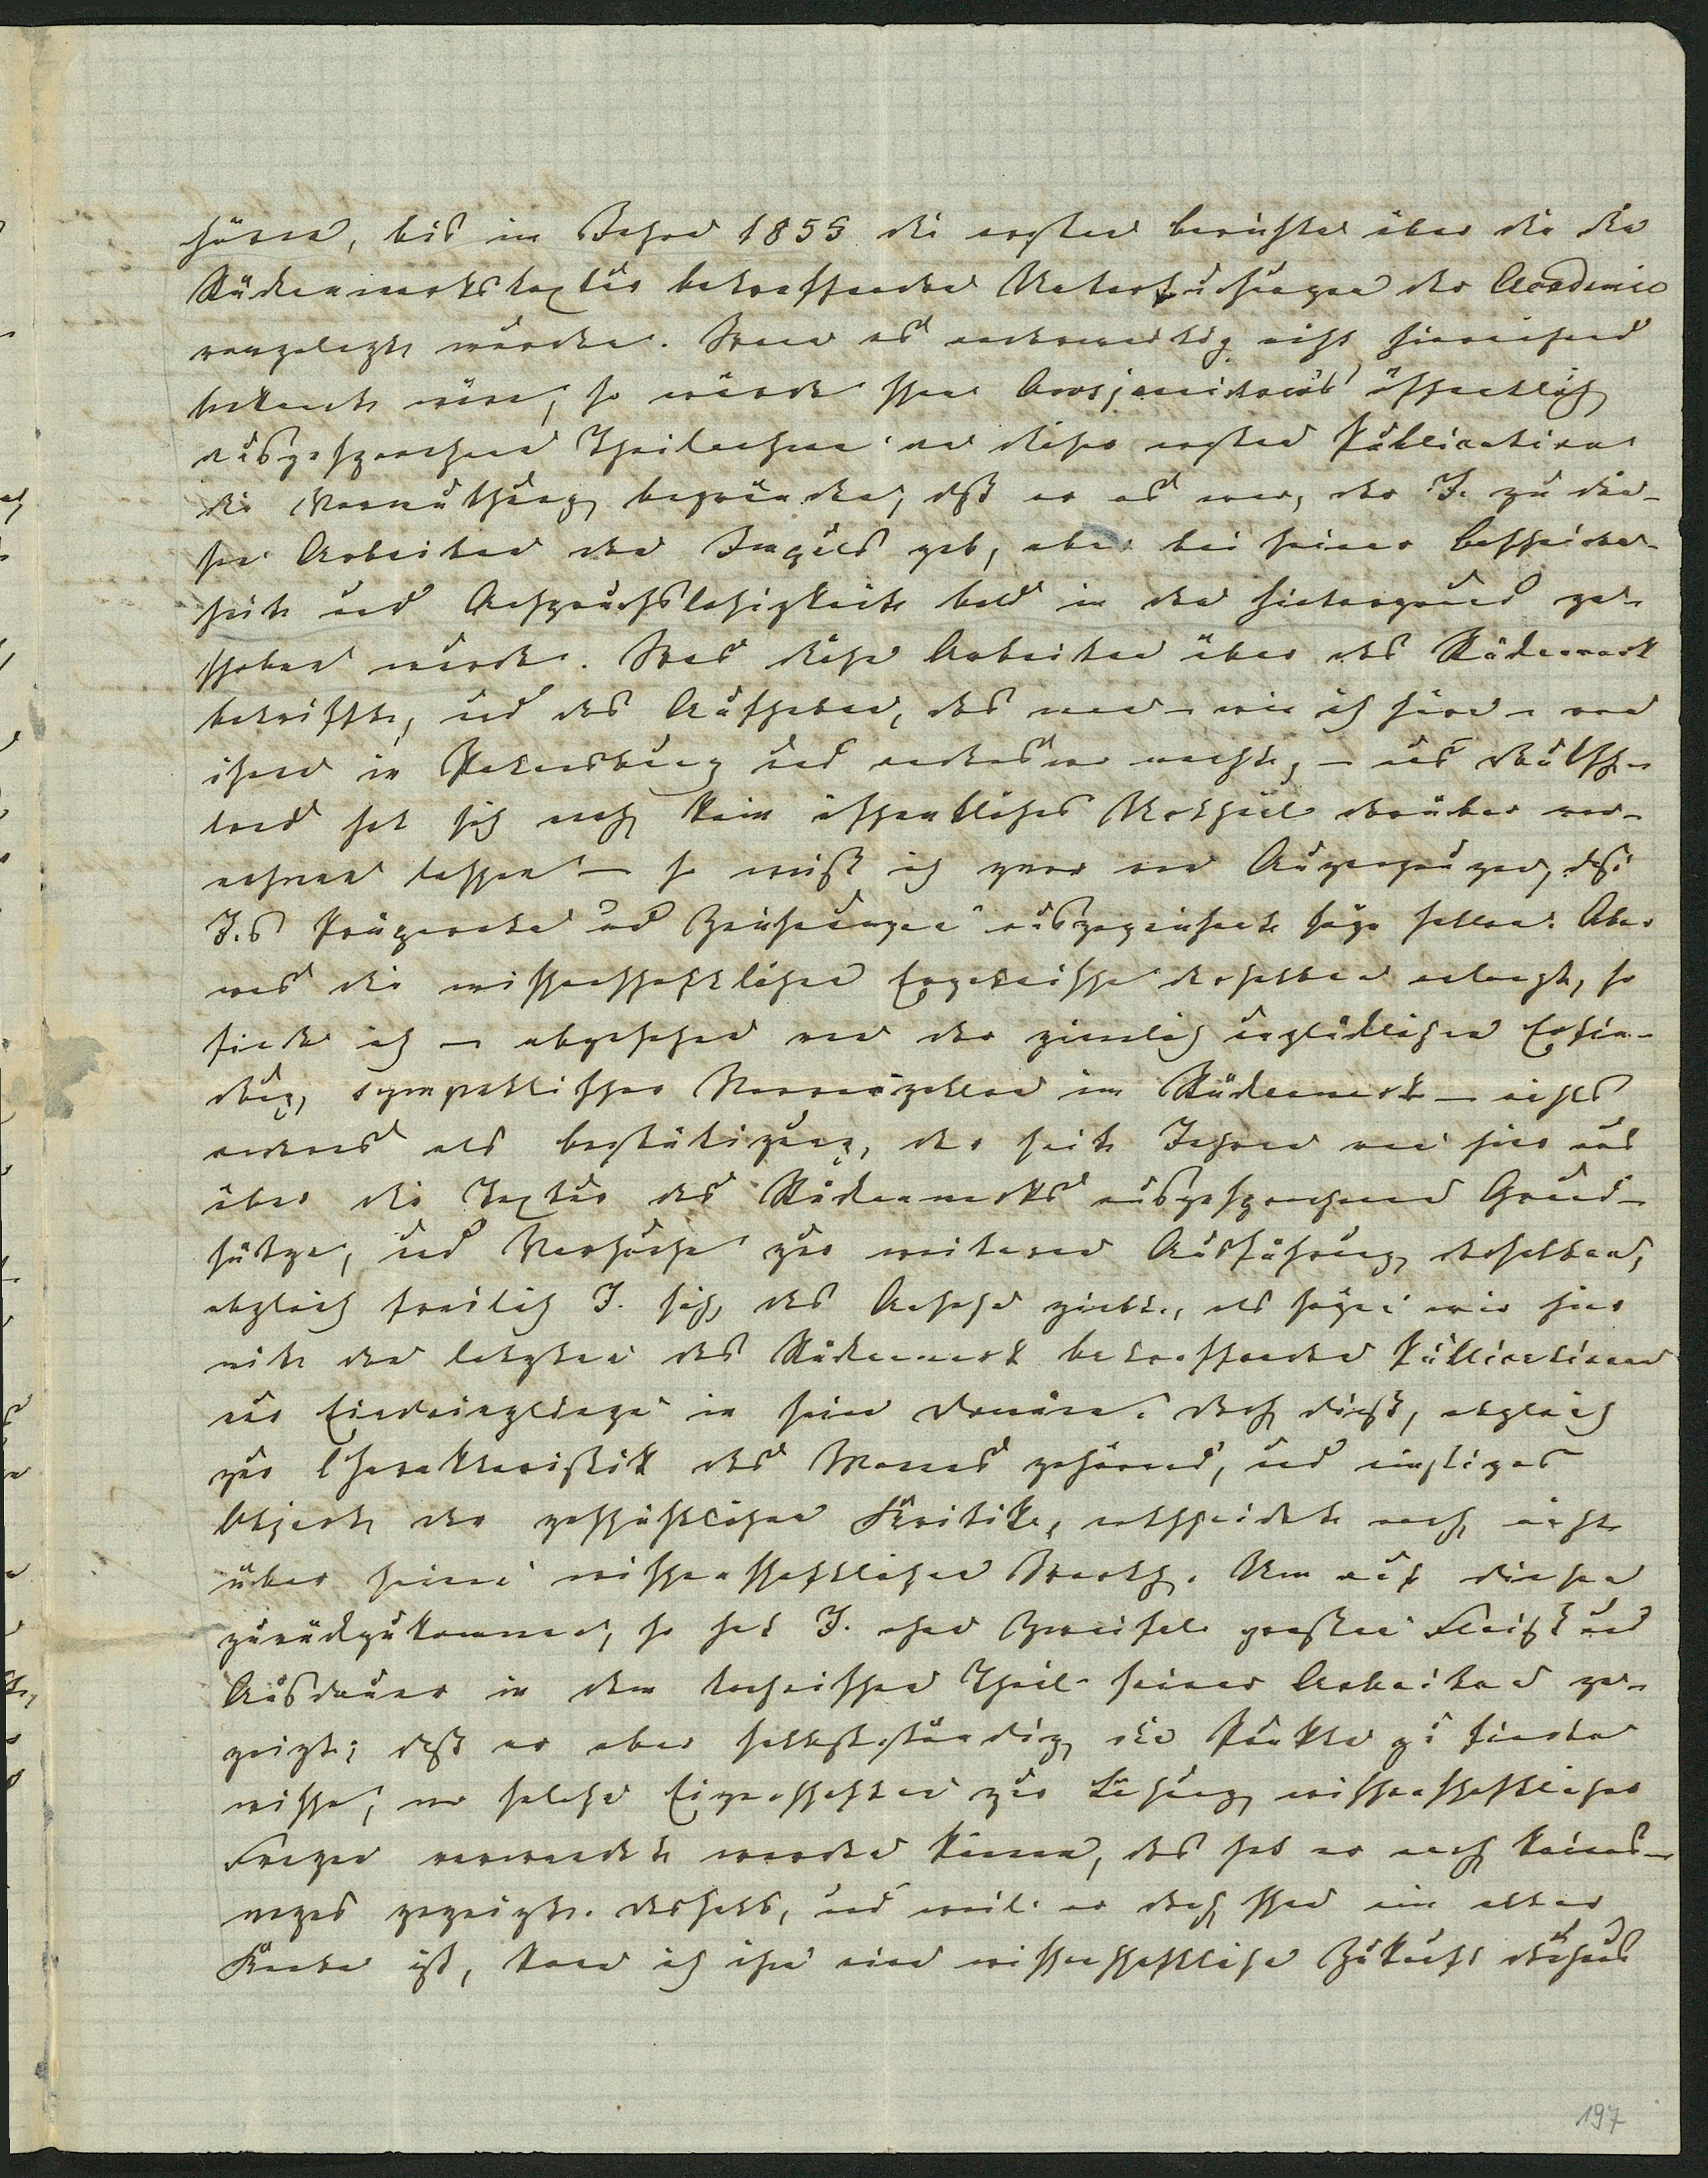 hören, bis im Jahre 1855 die ersten Berichte über die die
Rückenmarkstextur betreffenden Untersuchungen der Academie
vorgelegt wurden. Wenn es anderweitig nicht hinreichend
bekannt wäre, so würde schon Owsjannikow's öffentlich
ausgesprochene Theilnahme an dieser ersten Publication
die Vermuthung begründen, daß er es war, der J. zu die-
sen Arbeiten den Impuls gab, aber bei seiner Bescheiden-
heit und Anspruchslosigkeit bald in den Hintergrund ge-
schoben wurde. Was diese Arbeiten über das Rückenmark
betrifft, und das Aufheben, das man – wie ich höre – von
ihnen in Petersburg und anderswo macht, – aus Deutsch-
land hat sich noch kein öffentliches Urtheil darüber ver-
nehmen lassen – so weiß ich zwar von Augenzeugen, daß
J.s Präparate und Zeichnungen ausgezeichnet sein sollen. Aber
was die wissenschaftlichen Ergebnisse derselben anlangt, so
finde ich – abgesehen von der ziemlich unglücklichen Erfin-
dung sympathischer Nervenzellen im Rückenmark – nichts
anderes als Bestätigung, der seit Jahren von hier aus
über die Textur des Rückenmarks ausgesprochenen Grund-
sätze, und Versuche zur weiteren Ausführung derselben,
obgleich freilich J. sich das Ansehn giebt, als seien wir hier
mit den letzten das Rückenmark betreffenden Publicationen
nur Eindringlinge in seine Domäne. Doch dieß, obgleich
zur Charakteristik des Mannes gehörend, und einstiges
Object der geschichtlichen Kritik, entscheidet noch nicht
über seinen wissenschaftlichen Werth. Um auf diesen
zurückzukommen, so hat J. ohne Zweifel großen Fleiß und
Ausdauer in dem technischen Theil seiner Arbeiten ge-
zeigt; daß er aber selbstständig die Punkte zu finden
wisse, wo solche Eigenschaften zur Lösung wissenschaftlicher
Fragen verwendet werden können, das hat er noch keines-
weges gezeigt. Deshalb, und weil er doch schon ein alter
Knabe ist, kann ich ihm eine wissenschaftliche Zukunft durchaus
197